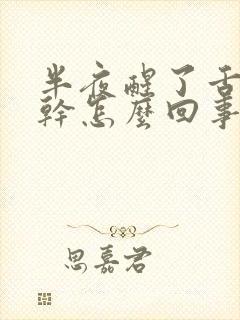 半夜醒了舌
幹怎麽回事
思嘉君